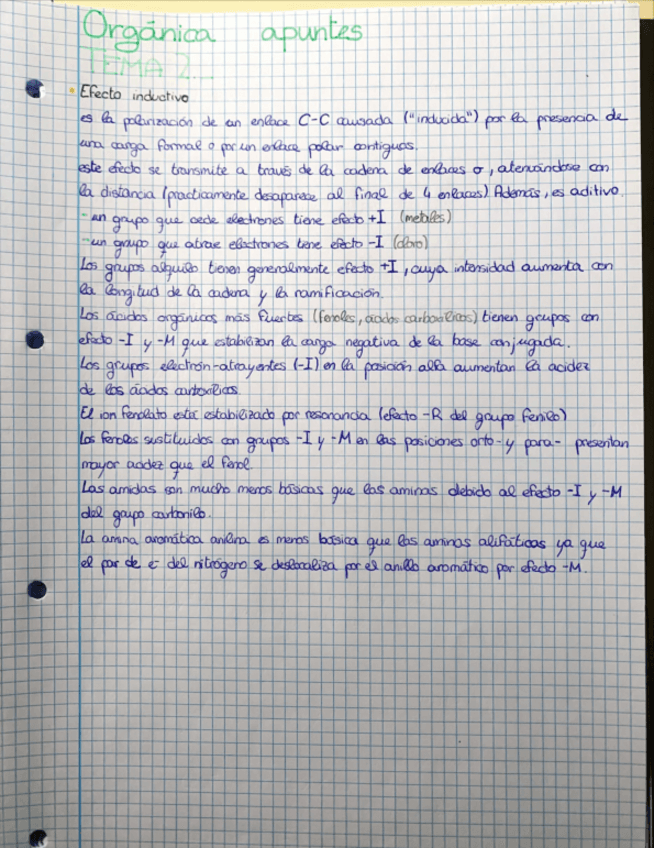 Orgánica apuntes
TEMA 2...
Efecto inductivo
es la polarización de un enlace C-C causada ("inducida") por la presencia de
una carga formal o por un enlace polar contiguos.
este efecto se transmite a través de la cadena de enlaces σ, atenuándose con
la distancia (practicamente desaparece al final de 4 enlaces) Además, es aditivo.
- un grupo que cede electrones tiene efecto +I (metales)
- un grupo que atrae electrones tiene efecto -I (cloro)
Los grupos alquilo tienen generalmente efecto +I, cuya intensidad aumenta con
la longitud de la cadena y la ramificación.
Los ácidos orgánicos más fuertes (fenoles, ácidos carboxílicos) tienen grupos con
efecto -I y -M que estabilizan la carga negativa de la base conjugada.
Los grupos electrón-atrayentes (-I) en la posición alfa aumentan la acidez
de los ácidos carboxílicos.
El ion fenolato está estabilizado por resonancia (efecto -R del grupo fenilo)
Los fenoles sustituidos con grupos -I y -M en las posiciones orto- y para- presentan
mayor acidez que el fenol
Las amidas son mucho menos básicas que las aminas debido al efecto -I y -M
del grupo carbonilo.
La amina aromática anilina es menos básica que las aminas alifáticas ya que
el par de e⁻ del nitrógeno se deslocaliza por el anillo aromático por efecto -M.